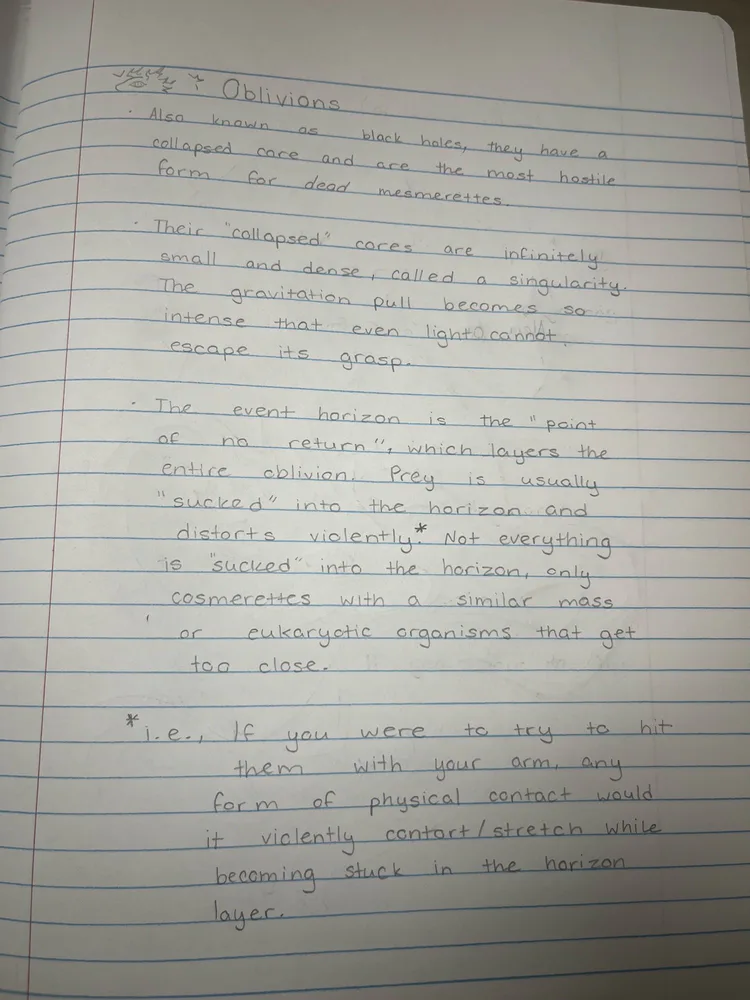 Oblivions
· Also known as black holes, they have a
collapsed core and are the most hostile
form for dead mesmerettes.
· Their "collapsed" cores are infinitely
small and dense, called a singularity.
The gravitation pull becomes so
intense that even light cannot
escape its grasp.
· The event horizon is the "point
of no return", which layers the
entire oblivion. Prey is usually
"sucked" into the horizon and
distorts violently.* Not everything
is "sucked" into the horizon, only
cosmerettes with a similar mass
or eukaryotic organisms that get
too close.
*i.e., If you were to try to hit
them with your arm, any
form of physical contact would
it violently contort/stretch while
becoming stuck in the horizon
layer.